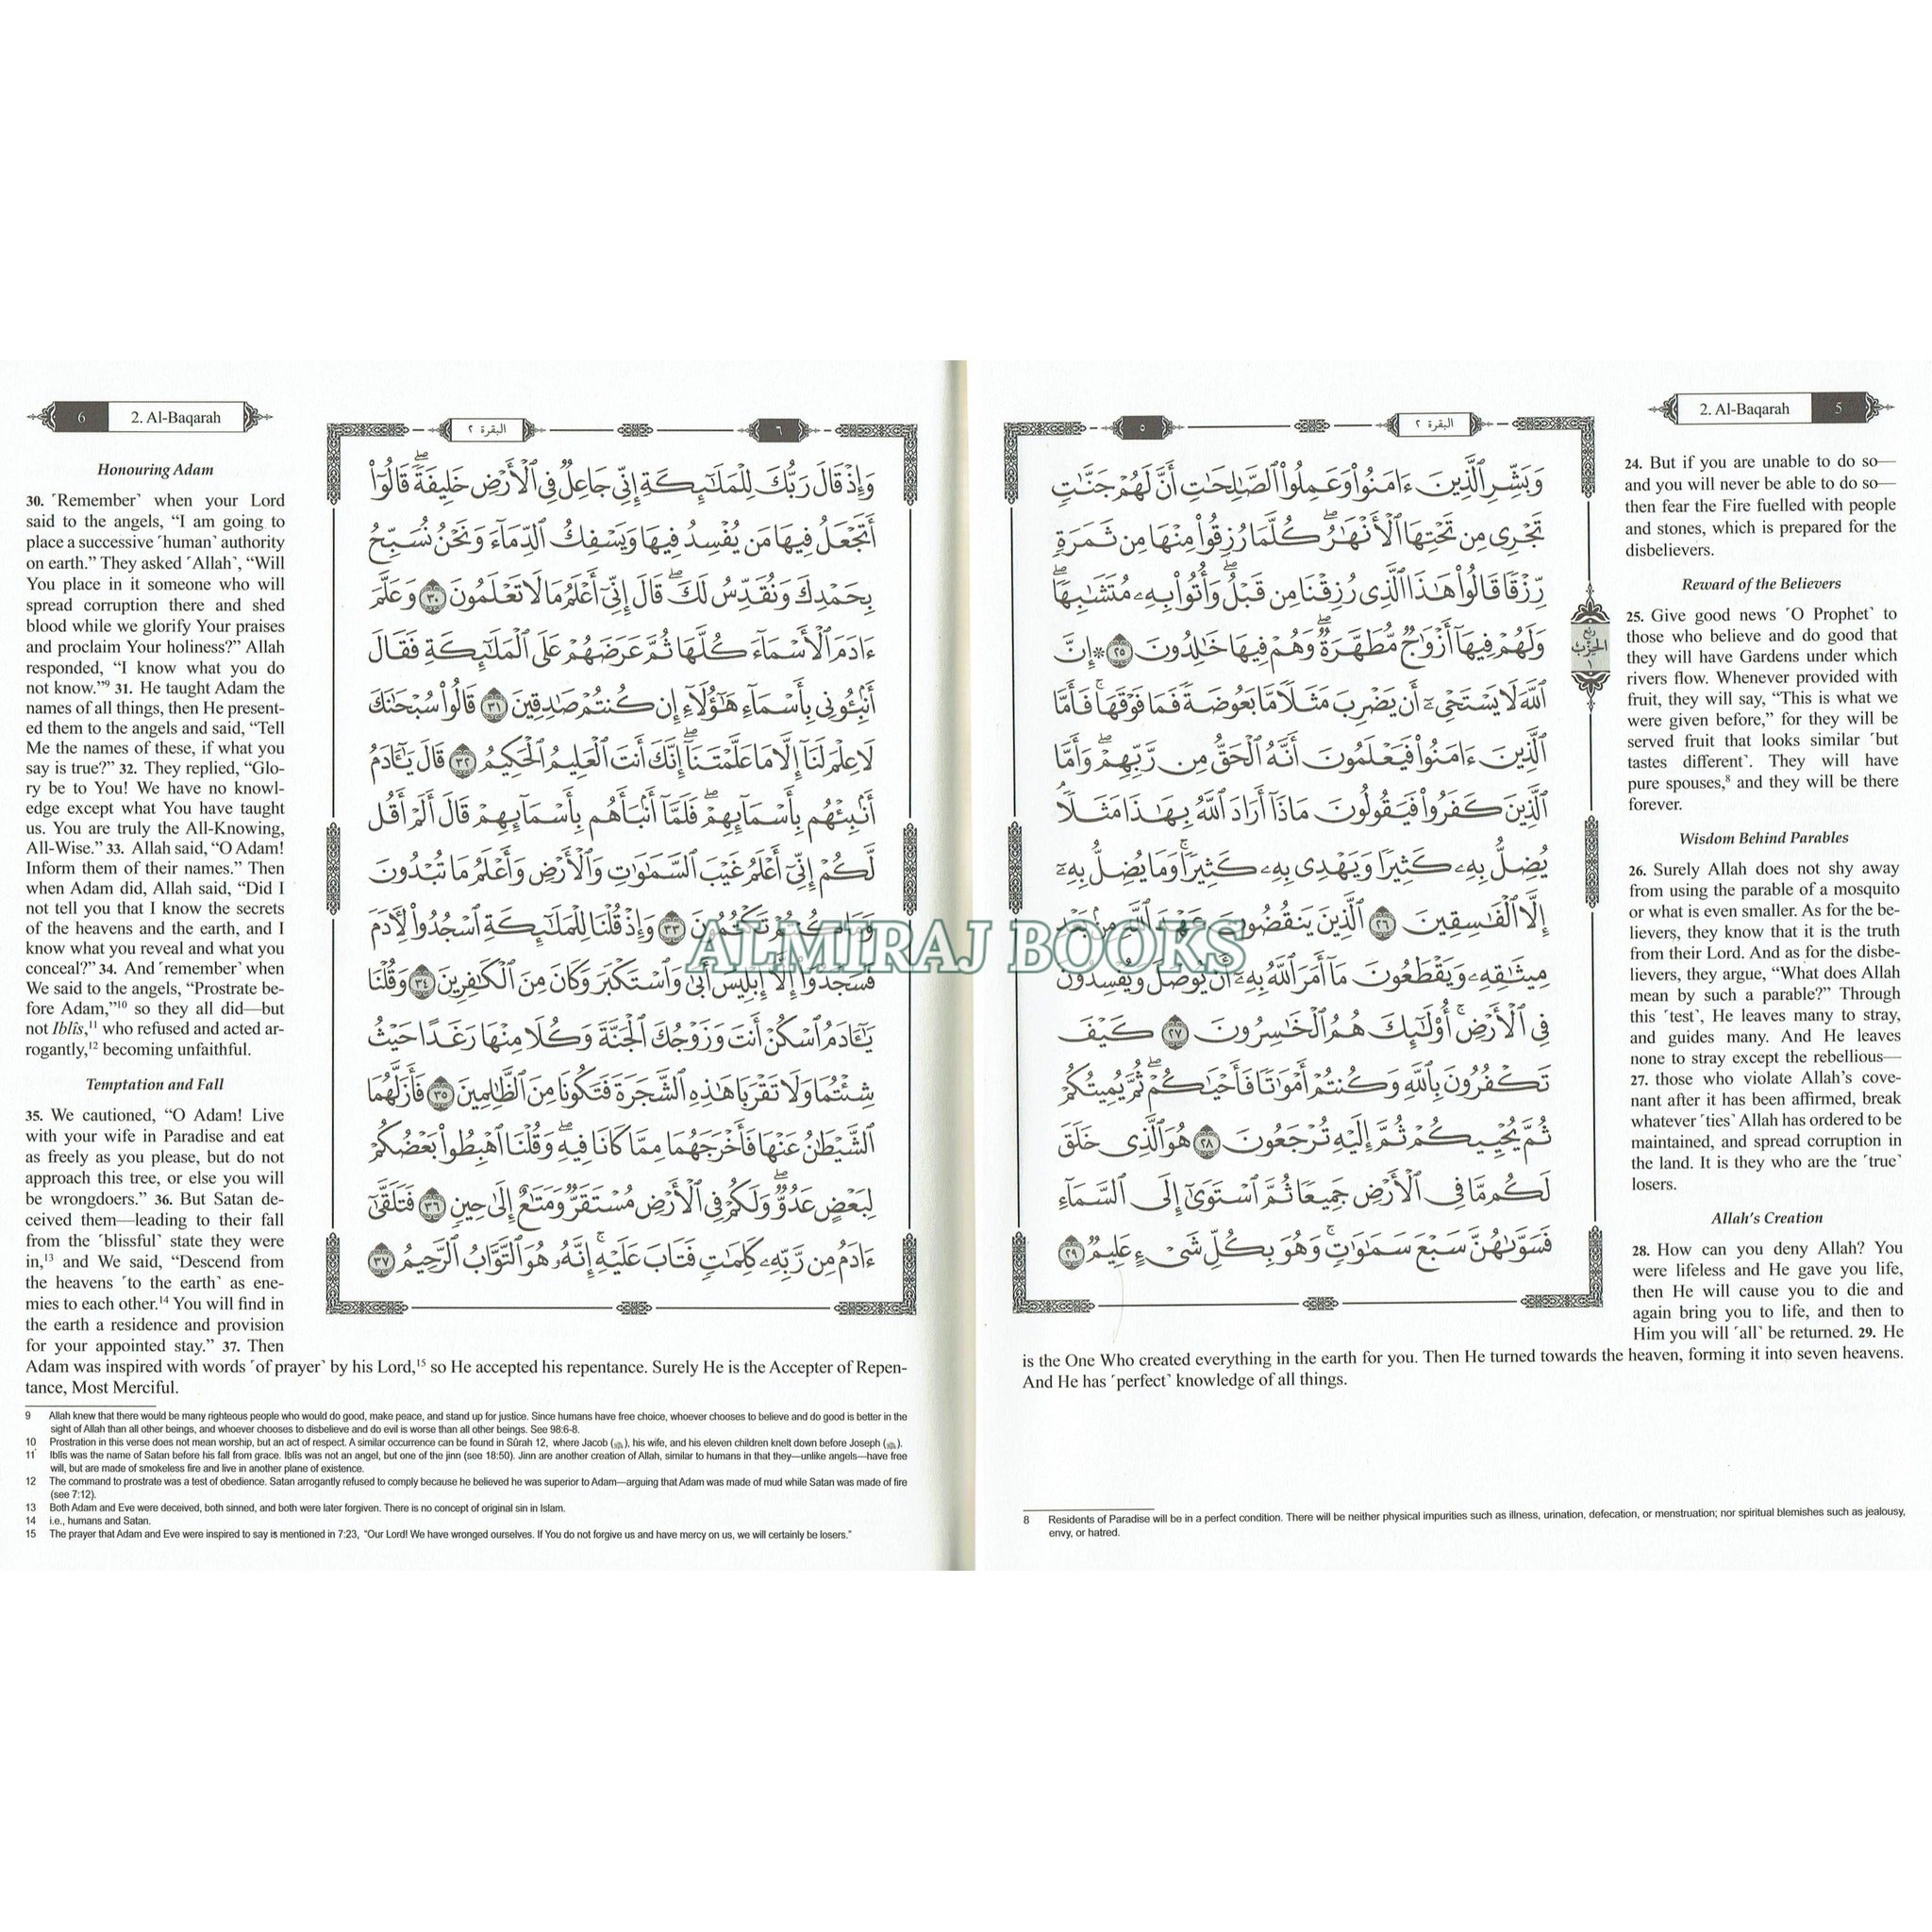 2. Al-Baqarah 5
24. But if you are unable to do so—
and you will never be able to do so—
then fear the Fire fuelled with people
and stones, which is prepared for the
disbelievers.
Reward of the Believers
25. Give good news ˹O Prophet˺ to
those who believe and do good that
they will have Gardens under which
rivers flow. Whenever provided with
fruit, they will say, “This is what we
were given before,” for they will be
served fruit that looks similar ˹but
tastes different˺. They will have
pure spouses,⁸ and they will be there
forever.
Wisdom Behind Parables
26. Surely Allah does not shy away
from using the parable of a mosquito
or what is even smaller. As for the be-
lievers, they know that it is the truth
from their Lord. And as for the disbe-
lievers, they argue, “What does Allah
mean by such a parable?” Through
this ˹test˺, He leaves many to stray,
and guides many. And He leaves
none to stray except the rebellious—
27. those who violate Allah’s cove-
nant after it has been affirmed, break
whatever ˹ties˺ Allah has ordered to be
maintained, and spread corruption in
the land. It is they who are the ˹true˺
losers.
Allah’s Creation
28. How can you deny Allah? You
were lifeless and He gave you life,
then He will cause you to die and
again bring you to life, and then to
Him you will ˹all˺ be returned. 29. He
is the One Who created everything in the earth for you. Then He turned towards the heaven, forming it into seven heavens.
And He has ˹perfect˺ knowledge of all things.
البقرة ٢
٥
وَبَشِّرِ ٱلَّذِينَ ءَامَنُوا۟ وَعَمِلُوا۟ ٱلصَّـٰلِحَـٰتِ أَنَّ لَهُمْ جَنَّـٰتٍ
تَجْرِى مِن تَحْتِهَا ٱلْأَنْهَـٰرُ ۖ كُلَّمَا رُزِقُوا۟ مِنْهَا مِن ثَمَرَةٍ
رِّزْقًا قَالُوا۟ هَـٰذَا ٱلَّذِى رُزِقْنَا مِن قَبْلُ ۖ وَأُتُوا۟ بِهِۦ مُتَشَـٰبِهًا ۖ
وَلَهُمْ فِيهَآ أَزْوَٰجٌ مُّطَهَّرَةٌ ۖ وَهُمْ فِيهَا خَـٰلِدُونَ ٢٥ ۞ إِنَّ
ٱللَّهَ لَا يَسْتَحْىِۦٓ أَن يَضْرِبَ مَثَلًا مَّا بَعُوضَةً فَمَا فَوْقَهَا ۚ فَأَمَّا
ٱلَّذِينَ ءَامَنُوا۟ فَيَعْلَمُونَ أَنَّهُ ٱلْحَقُّ مِن رَّبِّهِمْ ۖ وَأَمَّا
ٱلَّذِينَ كَفَرُوا۟ فَيَقُولُونَ مَاذَآ أَرَادَ ٱللَّهُ بِهَـٰذَا مَثَلًا ۘ
يُضِلُّ بِهِۦ كَثِيرًا وَيَهْدِى بِهِۦ كَثِيرًا ۚ وَمَا يُضِلُّ بِهِۦٓ
إِلَّا ٱلْفَـٰسِقِينَ ٢٦ ٱلَّذِينَ يَنقُضُونَ عَهْدَ ٱللَّهِ مِنۢ بَعْدِ
مِيثَـٰقِهِۦ وَيَقْطَعُونَ مَآ أَمَرَ ٱللَّهُ بِهِۦٓ أَن يُوصَلَ وَيُفْسِدُونَ
فِى ٱلْأَرْضِ ۚ أُو۟لَـٰٓئِكَ هُمُ ٱلْخَـٰسِرُونَ ٢٧ كَيْفَ
تَكْفُرُونَ بِٱللَّهِ وَكُنتُمْ أَمْوَٰتًا فَأَحْيَـٰكُمْ ۖ ثُمَّ يُمِيتُكُمْ
ثُمَّ يُحْيِيكُمْ ثُمَّ إِلَيْهِ تُرْجَعُونَ ٢٨ هُوَ ٱلَّذِى خَلَقَ
لَكُم مَّا فِى ٱلْأَرْضِ جَمِيعًا ثُمَّ ٱسْتَوَىٰٓ إِلَى ٱلسَّمَآءِ
فَسَوَّىٰهُنَّ سَبْعَ سَمَـٰوَٰتٍ ۚ وَهُوَ بِكُلِّ شَىْءٍ عَلِيمٌ ٢٩
ربع
الحزب
١
8 Residents of Paradise will be in a perfect condition. There will be neither physical impurities such as illness, urination, defecation, or menstruation; nor spiritual blemishes such as jealousy,
envy, or hatred.
6 2. Al-Baqarah
Honouring Adam
30. ˹Remember˺ when your Lord
said to the angels, “I am going to
place a successive ˹human˺ authority
on earth.” They asked ˹Allah˺, “Will
You place in it someone who will
spread corruption there and shed
blood while we glorify Your praises
and proclaim Your holiness?” Allah
responded, “I know what you do
not know.”⁹ 31. He taught Adam the
names of all things, then He present-
ed them to the angels and said, “Tell
Me the names of these, if what you
say is true?” 32. They replied, “Glo-
ry be to You! We have no knowl-
edge except what You have taught
us. You are truly the All-Knowing,
All-Wise.” 33. Allah said, “O Adam!
Inform them of their names.” Then
when Adam did, Allah said, “Did I
not tell you that I know the secrets
of the heavens and the earth, and I
know what you reveal and what you
conceal?” 34. And ˹remember˺ when
We said to the angels, “Prostrate be-
fore Adam,”¹⁰ so they all did—but
not Iblîs,¹¹ who refused and acted ar-
rogantly,¹² becoming unfaithful.
Temptation and Fall
35. We cautioned, “O Adam! Live
with your wife in Paradise and eat
as freely as you please, but do not
approach this tree, or else you will
be wrongdoers.” 36. But Satan de-
ceived them—leading to their fall
from the ˹blissful˺ state they were
in,¹³ and We said, “Descend from
the heavens ˹to the earth˺ as ene-
mies to each other.¹⁴ You will find in
the earth a residence and provision
for your appointed stay.” 37. Then
Adam was inspired with words ˹of prayer˺ by his Lord,¹⁵ so He accepted his repentance. Surely He is the Accepter of Repen-
tance, Most Merciful.
٦
البقرة ٢
وَإِذْ قَالَ رَبُّكَ لِلْمَلَـٰٓئِكَةِ إِنِّى جَاعِلٌ فِى ٱلْأَرْضِ خَلِيفَةً ۖ قَالُوٓا۟
أَتَجْعَلُ فِيهَا مَن يُفْسِدُ فِيهَا وَيَسْفِكُ ٱلدِّمَآءَ وَنَحْنُ نُسَبِّحُ
بِحَمْدِكَ وَنُقَدِّسُ لَكَ ۖ قَالَ إِنِّىٓ أَعْلَمُ مَا لَا تَعْلَمُونَ ٣٠ وَعَلَّمَ
ءَادَمَ ٱلْأَسْمَآءَ كُلَّهَا ثُمَّ عَرَضَهُمْ عَلَى ٱلْمَلَـٰٓئِكَةِ فَقَالَ
أَنۢبِـُٔونِى بِأَسْمَآءِ هَـٰٓؤُلَآءِ إِن كُنتُمْ صَـٰدِقِينَ ٣١ قَالُوا۟ سُبْحَـٰنَكَ
لَا عِلْمَ لَنَآ إِلَّا مَا عَلَّمْتَنَآ ۖ إِنَّكَ أَنتَ ٱلْعَلِيمُ ٱلْحَكِيمُ ٣٢ قَالَ يَـٰٓـَٔادَمُ
أَنۢبِئْهُم بِأَسْمَآئِهِمْ ۖ فَلَمَّآ أَنۢبَأَهُم بِأَسْمَآئِهِمْ قَالَ أَلَمْ أَقُل
لَّكُمْ إِنِّىٓ أَعْلَمُ غَيْبَ ٱلسَّمَـٰوَٰتِ وَٱلْأَرْضِ وَأَعْلَمُ مَا تُبْدُونَ
وَمَا كُنتُمْ تَكْتُمُونَ ٣٣ وَإِذْ قُلْنَا لِلْمَلَـٰٓئِكَةِ ٱسْجُدُوا۟ لِـَٔادَمَ
فَسَجَدُوٓا۟ إِلَّآ إِبْلِيسَ أَبَىٰ وَٱسْتَكْبَرَ وَكَانَ مِنَ ٱلْكَـٰفِرِينَ ٣٤ وَقُلْنَا
يَـٰٓـَٔادَمُ ٱسْكُنْ أَنتَ وَزَوْجُكَ ٱلْجَنَّةَ وَكُلَا مِنْهَا رَغَدًا حَيْثُ
شِئْتُمَا وَلَا تَقْرَبَا هَـٰذِهِ ٱلشَّجَرَةَ فَتَكُونَا مِنَ ٱلظَّـٰلِمِينَ ٣٥ فَأَزَلَّهُمَا
ٱلشَّيْطَـٰنُ عَنْهَا فَأَخْرَجَهُمَا مِمَّا كَانَا فِيهِ ۖ وَقُلْنَا ٱهْبِطُوا۟ بَعْضُكُمْ
لِبَعْضٍ عَدُوٌّ ۖ وَلَكُمْ فِى ٱلْأَرْضِ مُسْتَقَرٌّ وَمَتَـٰعٌ إِلَىٰ حِينٍ ٣٦ فَتَلَقَّىٰٓ
ءَادَمُ مِن رَّبِّهِۦ كَلِمَـٰتٍ فَتَابَ عَلَيْهِ ۚ إِنَّهُۥ هُوَ ٱلتَّوَّابُ ٱلرَّحِيمُ ٣٧
9 Allah knew that there would be many righteous people who would do good, make peace, and stand up for justice. Since humans have free choice, whoever chooses to believe and do good is better in the
sight of Allah than all other beings, and whoever chooses to disbelieve and do evil is worse than all other beings. See 98:6-8.
10 Prostration in this verse does not mean worship, but an act of respect. A similar occurrence can be found in Sûrah 12, where Jacob (ﷺ), his wife, and his eleven children knelt down before Joseph (ﷺ).
11 Iblîs was the name of Satan before his fall from grace. Iblîs was not an angel, but one of the jinn (see 18:50). Jinn are another creation of Allah, similar to humans in that they—unlike angels—have free
will, but are made of smokeless fire and live in another plane of existence.
12 The command to prostrate was a test of obedience. Satan arrogantly refused to comply because he believed he was superior to Adam—arguing that Adam was made of mud while Satan was made of fire
(see 7:12).
13 Both Adam and Eve were deceived, both sinned, and both were later forgiven. There is no concept of original sin in Islam.
14 i.e., humans and Satan.
15 The prayer that Adam and Eve were inspired to say is mentioned in 7:23, “Our Lord! We have wronged ourselves. If You do not forgive us and have mercy on us, we will certainly be losers.”
ALMIRAJ BOOKS